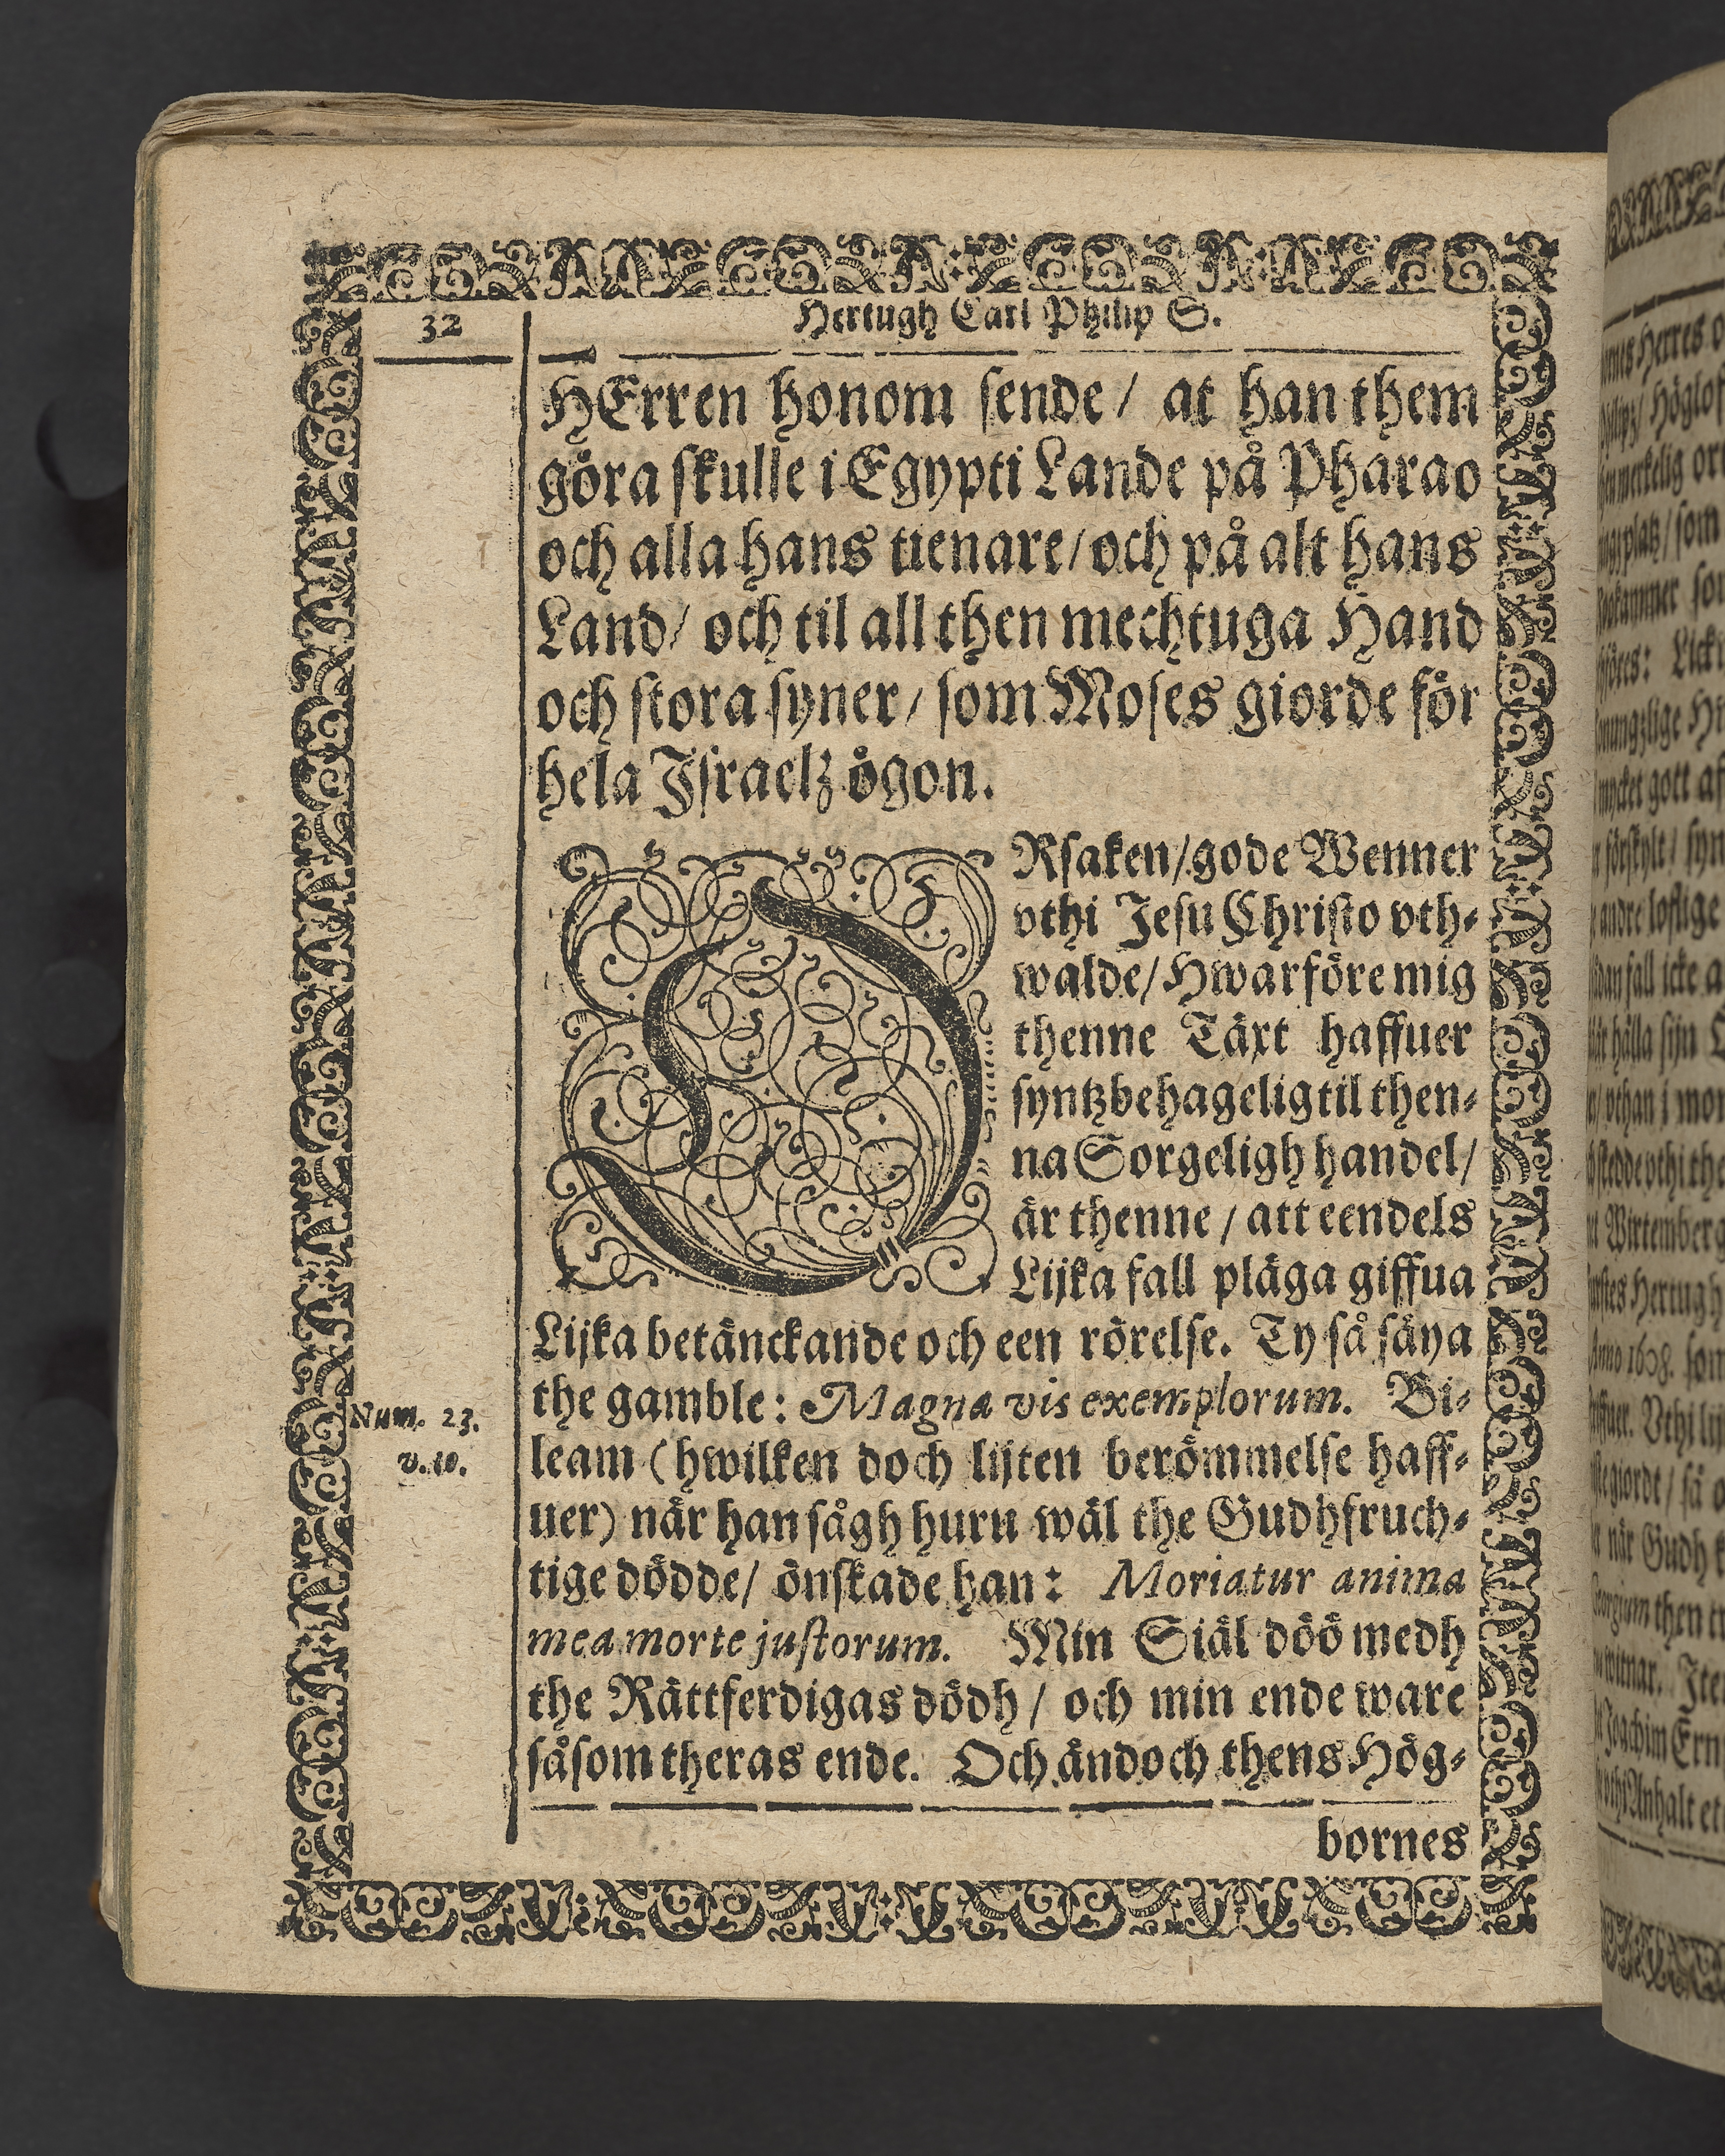 32
Hertugh Carl Philip S.
HErren honom sende / at han them
göra skulle i Egypti Lande på Pharao
och alla hans tienare / och på alt hans
Land / och til all then mechtuga Hand
och stora syner / som Moses giorde för
hela Jsraelz ögon.
ORsaken / gode Wenner
vthi Jesu Christo vth-
walde / Hwarföre mig
thenne Täxt haffuer
syntz behagelig til then-
na Sorgeligh handel /
är thenne / att eendels
Lijka fall pläga giffua
Lijka betänckande och een rörelse. Ty så säya
the gamble: Magna vis exemplorum. Bi-
Num. 23.
v. 10.
leam (hwilken doch lijten berömmelse haff-
uer) når han sågh huru wäl the Gudhfruch-
tige dödde / önskade han: Moriatur anima
mea morte justorum. Min Siäl döö medh
the Rättferdigas dödh / och min ende ware
såsom theras ende. Och ändoch thens Hög-
bornes